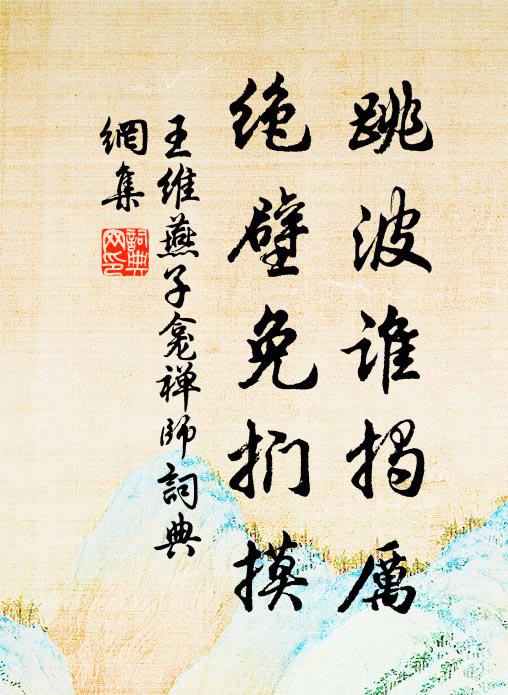 跳波谁揭厲
绝壁免捫摸
王维燕子龛禅师詞典
網集
詞典网印